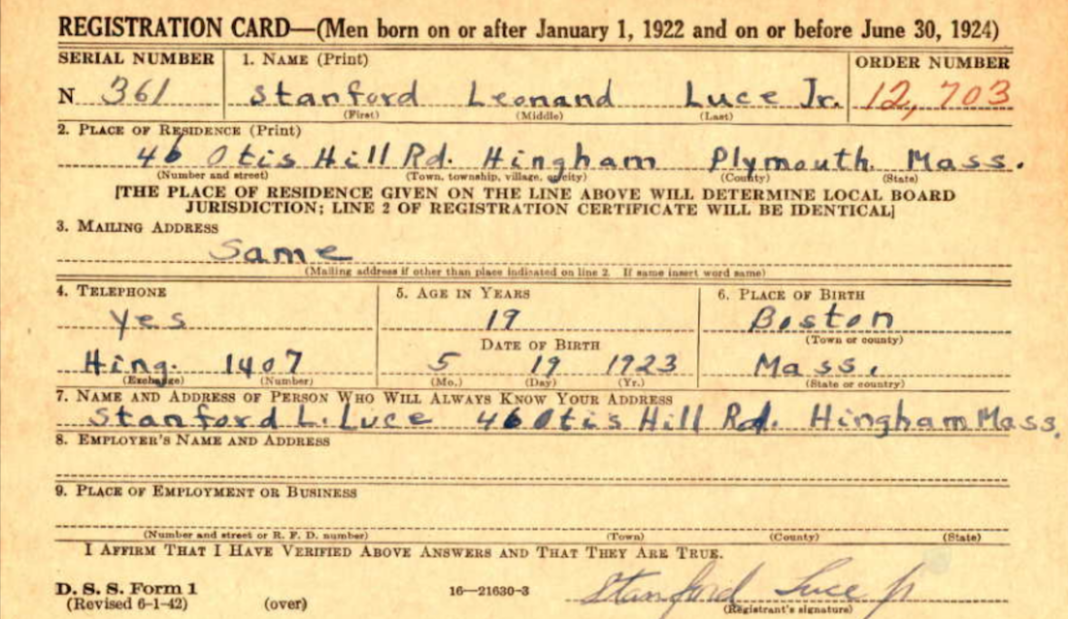 REGISTRATION CARD—(Men born on or after January 1, 1922 and on or before June 30, 1924)
SERIAL NUMBER 1. NAME (Print) ORDER NUMBER
N 361 Stanford Leonand Luce Jr. 12,703
(First) (Middle) (Last)
2. PLACE OF RESIDENCE (Print)
46 Otis Hill Rd. Hingham Plymouth Mass.
(Number and street) (Town, township, village, or city) (County) (State)
[THE PLACE OF RESIDENCE GIVEN ON THE LINE ABOVE WILL DETERMINE LOCAL BOARD
JURISDICTION; LINE 2 OF REGISTRATION CERTIFICATE WILL BE IDENTICAL]
3. MAILING ADDRESS
Same
(Mailing address if other than place indicated on line 2. If same insert word same)
4. TELEPHONE 5. AGE IN YEARS 6. PLACE OF BIRTH
Yes 19 Boston
DATE OF BIRTH (Town or county)
Hing. 1407 5 19 1923 Mass.
(Exchange) (Number) (Mo.) (Day) (Yr.) (State or country)
7. NAME AND ADDRESS OF PERSON WHO WILL ALWAYS KNOW YOUR ADDRESS
Stanford L. Luce 46 Otis Hill Rd. Hingham Mass.
8. EMPLOYER'S NAME AND ADDRESS
9. PLACE OF EMPLOYMENT OR BUSINESS
(Number and street or R. F. D. number) (Town) (County) (State)
I AFFIRM THAT I HAVE VERIFIED ABOVE ANSWERS AND THAT THEY ARE TRUE.
D. S. S. Form 1 16—21630-3 Stanford Luce Jr
(Revised 6-1-42) (over) (Registrant's signature)